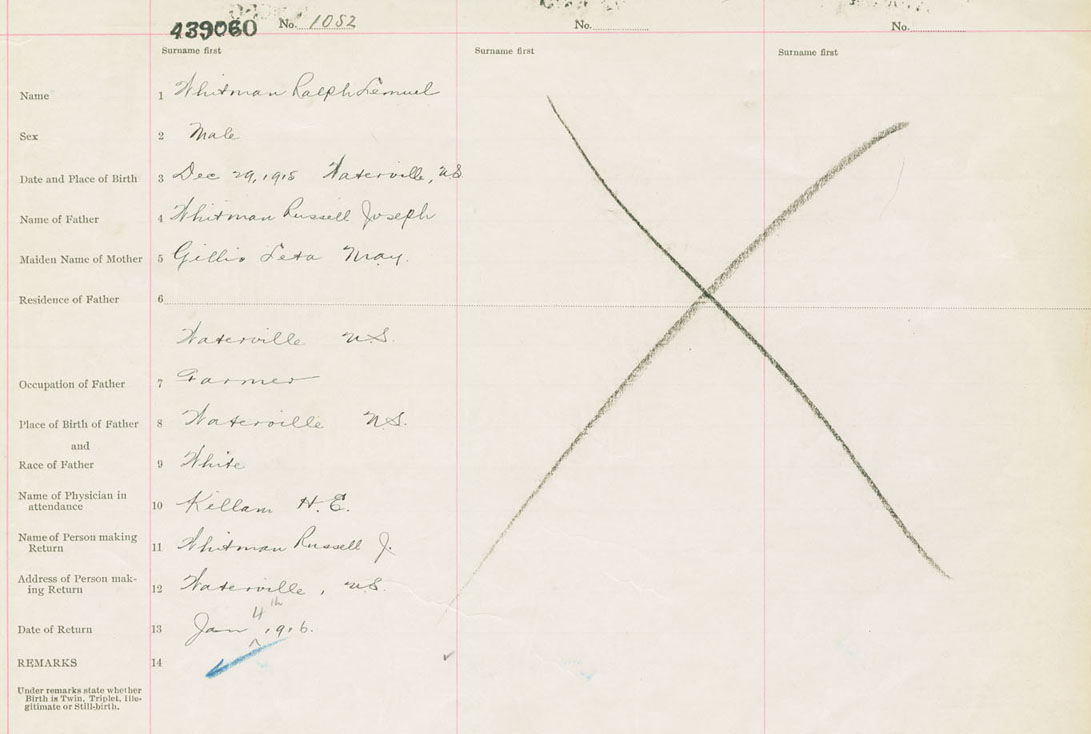 439060 No. 1052 No. No.
Surname first Surname first Surname first
Name 1 Whitman Ralph Lemuel
Sex 2 Male
Date and Place of Birth 3 Dec 29, 1915 Waterville, N.S.
Name of Father 4 Whitman Russell Joseph
Maiden Name of Mother 5 Gillis Leta May.
Residence of Father 6
Waterville N.S.
Occupation of Father 7 Farmer
Place of Birth of Father 8 Waterville N.S.
and
Race of Father 9 White
Name of Physician in
attendance 10 Kellam H.E.
Name of Person making
Return 11 Whitman Russell J.
Address of Person mak-
ing Return 12 Waterville, N.S.
Date of Return 13 Jan 4th, 1916.
REMARKS 14
Under remarks state whether
Birth is Twin, Triplet, Ille-
gitimate or Still-birth.